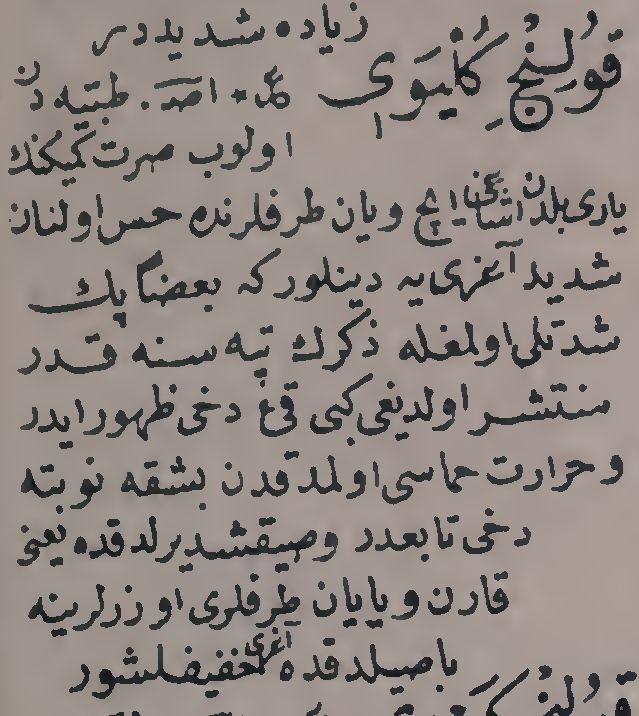 زیاده شدیددر
قُولِنْجِ کُلْیَوی
اصـ. طبیه دن
اولوب صرت کمیکنك
یاری بلدن اشاغی ایچ و یان طرفلرنده حس اولنان
شدید آغری یه دینلور که بعضاً پك
شدتلی اولمغله ذکرك تپه سنه قدر
منتشر اولدیغی کبی قئ دخی ظهور ایدر
و حرارت حماسی اولمدقدن بشقه نوبته
دخی تابعدر و صیقشدیرلدقده یعنی
قارن و یا یان طرفلری اوزرلرینه
باصیلدقده آغری خفیفلشور